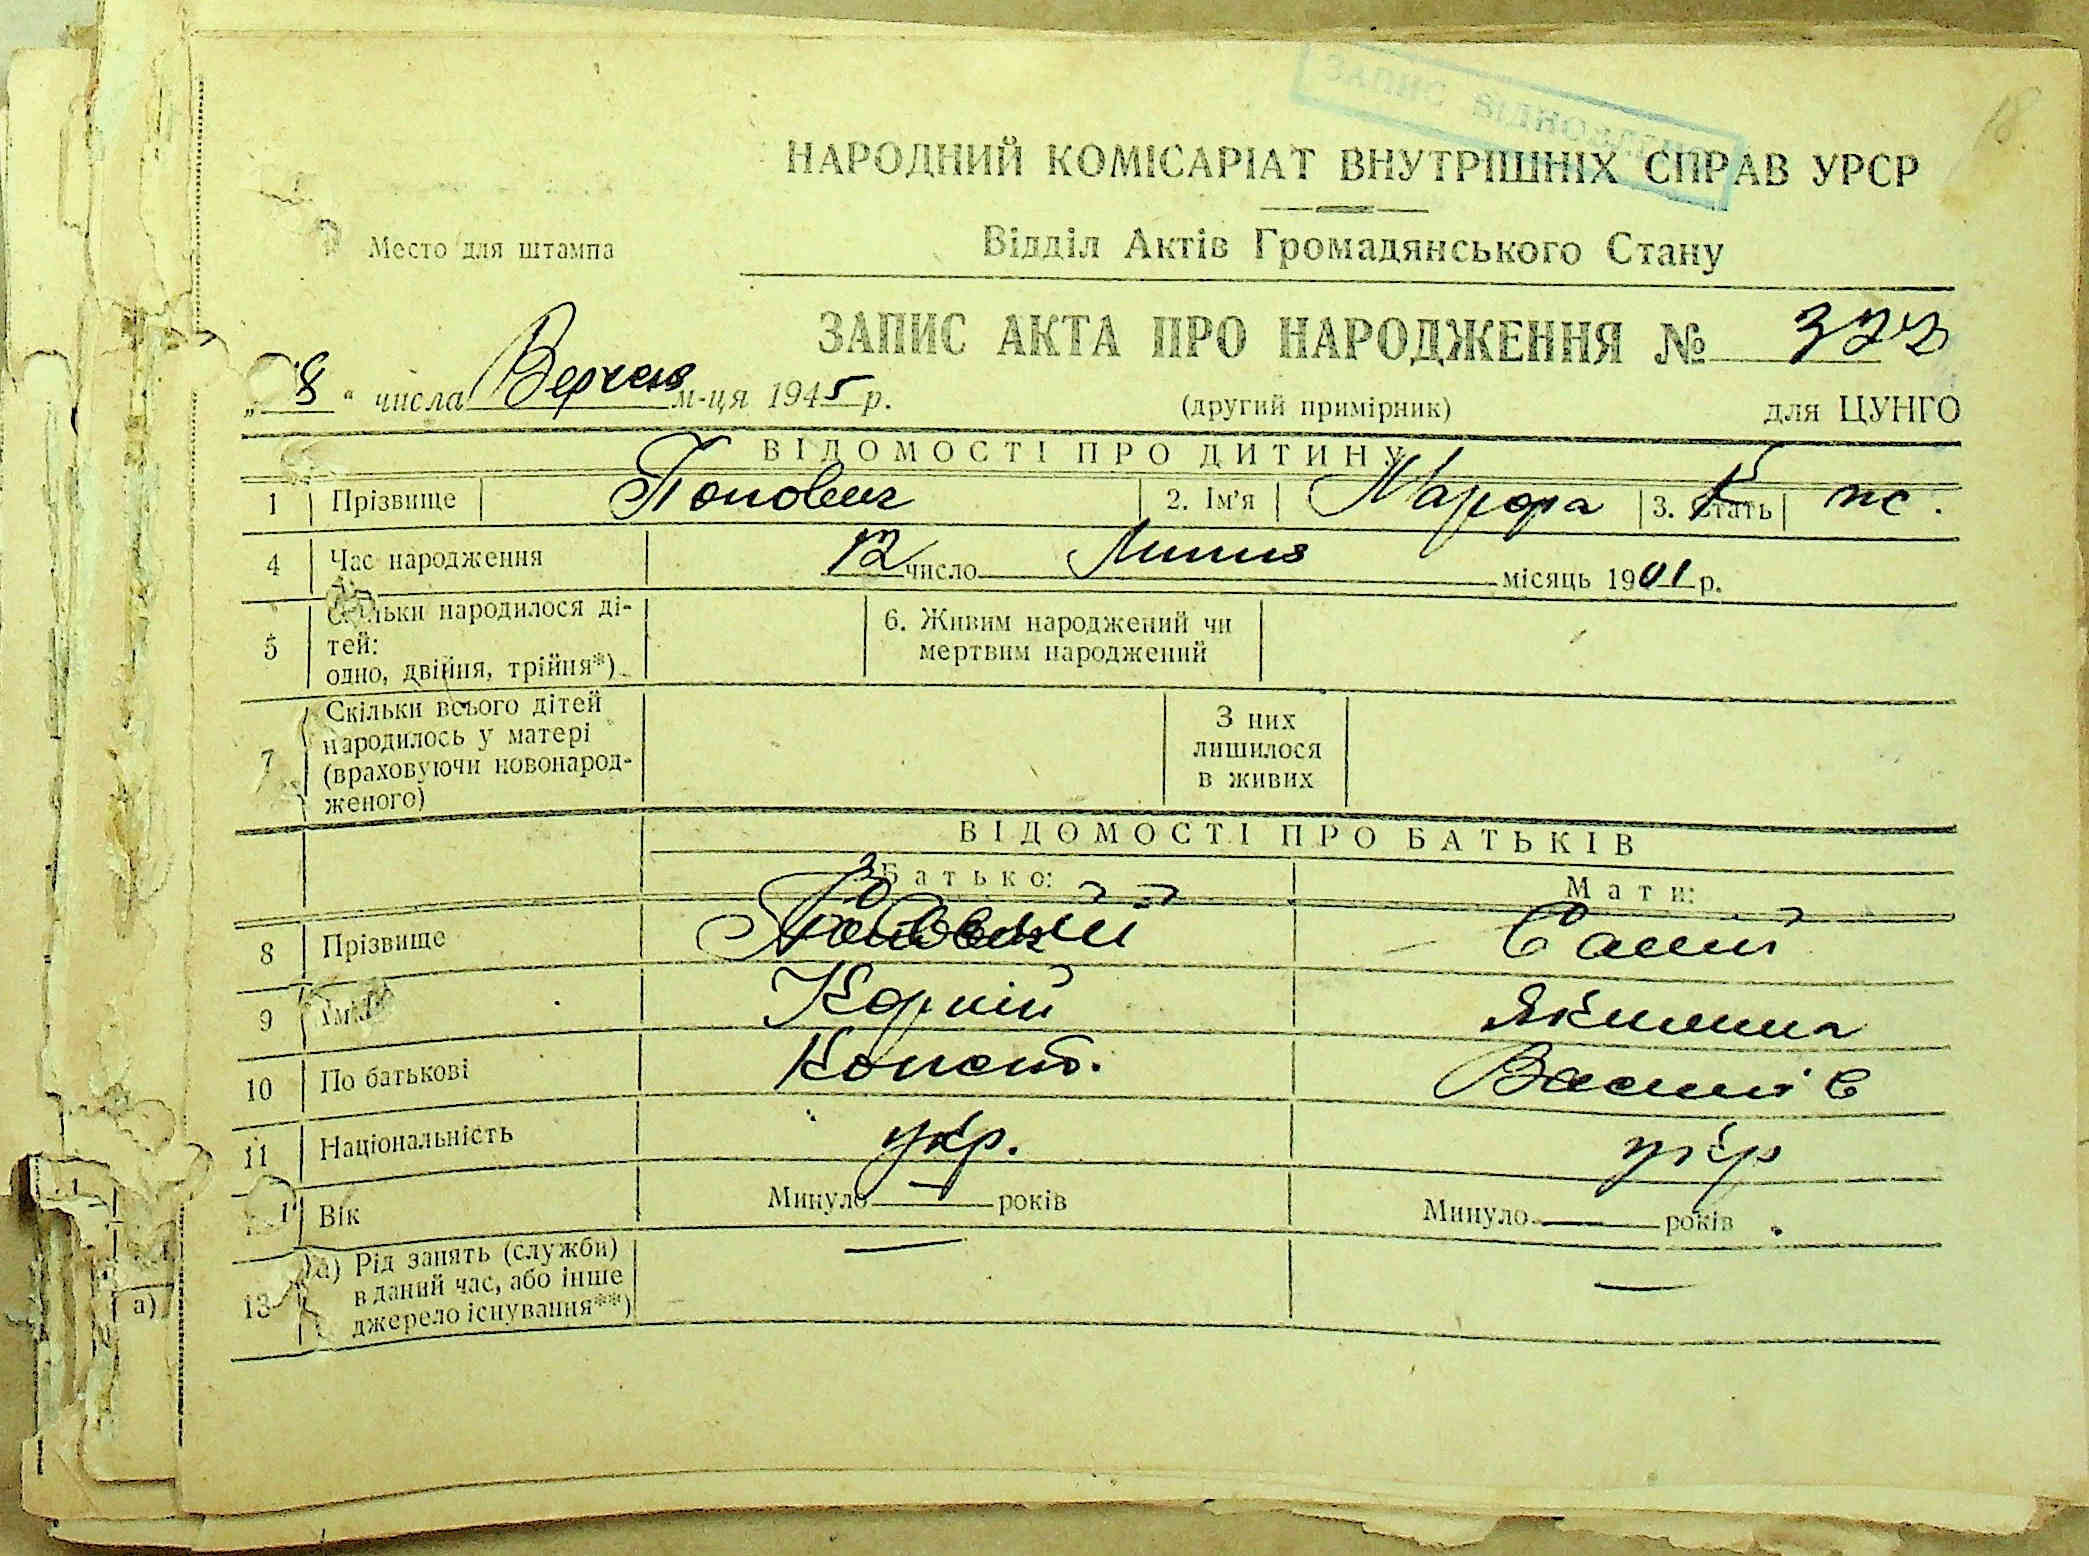 ЗАПИС ВІДНОВЛЕНО
18
НАРОДНИЙ КОМІСАРІАТ ВНУТРІШНІХ СПРАВ УРСР
Место для штампа
Відділ Актів Громадянського Стану
ЗАПИС АКТА ПРО НАРОДЖЕННЯ №
„8“ числа м-ця 1945 р.
(другий примірник) для ЦУНГО
ВІДОМОСТІ ПРО ДИТИНУ
1 Прізвище Попович 2. Ім'я 3. Стать
4 Час народження 12 число Липня місяць 1901 р.
5 Скільки народилося ді-
тей:
одно, двійня, трійня*)
6. Живим народжений чи
мертвим народжений
7 Скільки всього дітей
народилось у матері
(враховуючи новонарод-
женого)
З них
лишилося
в живих
ВІДОМОСТІ ПРО БАТЬКІВ
Батько: Мати:
8 Прізвище
9 Ім'я Корній Якилина
10 По батькові Конст. Василів
11 Національність укр. укр
Вік Минуло — років Минуло — років
13 а) Рід занять (служби)
в даний час, або інше
джерело існування**)
— —
а)